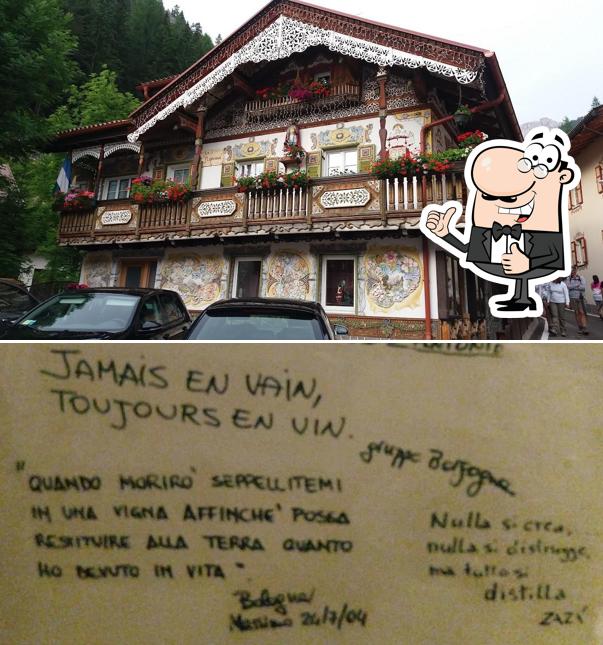 JAMAIS EN VAIN,
TOUJOURS EN VIN.
gruppo
"QUANDO MORIRO' SEPPELLITEMI
IN UNA VIGNA AFFINCHE' POSSA
RESTITUIRE ALLA TERRA QUANTO
HO BEVUTO IN VITA".
Bologna
Massimo 24/7/04
Nulla si crea,
nulla si distrugge,
ma tutto si
distilla
ZAZÍ